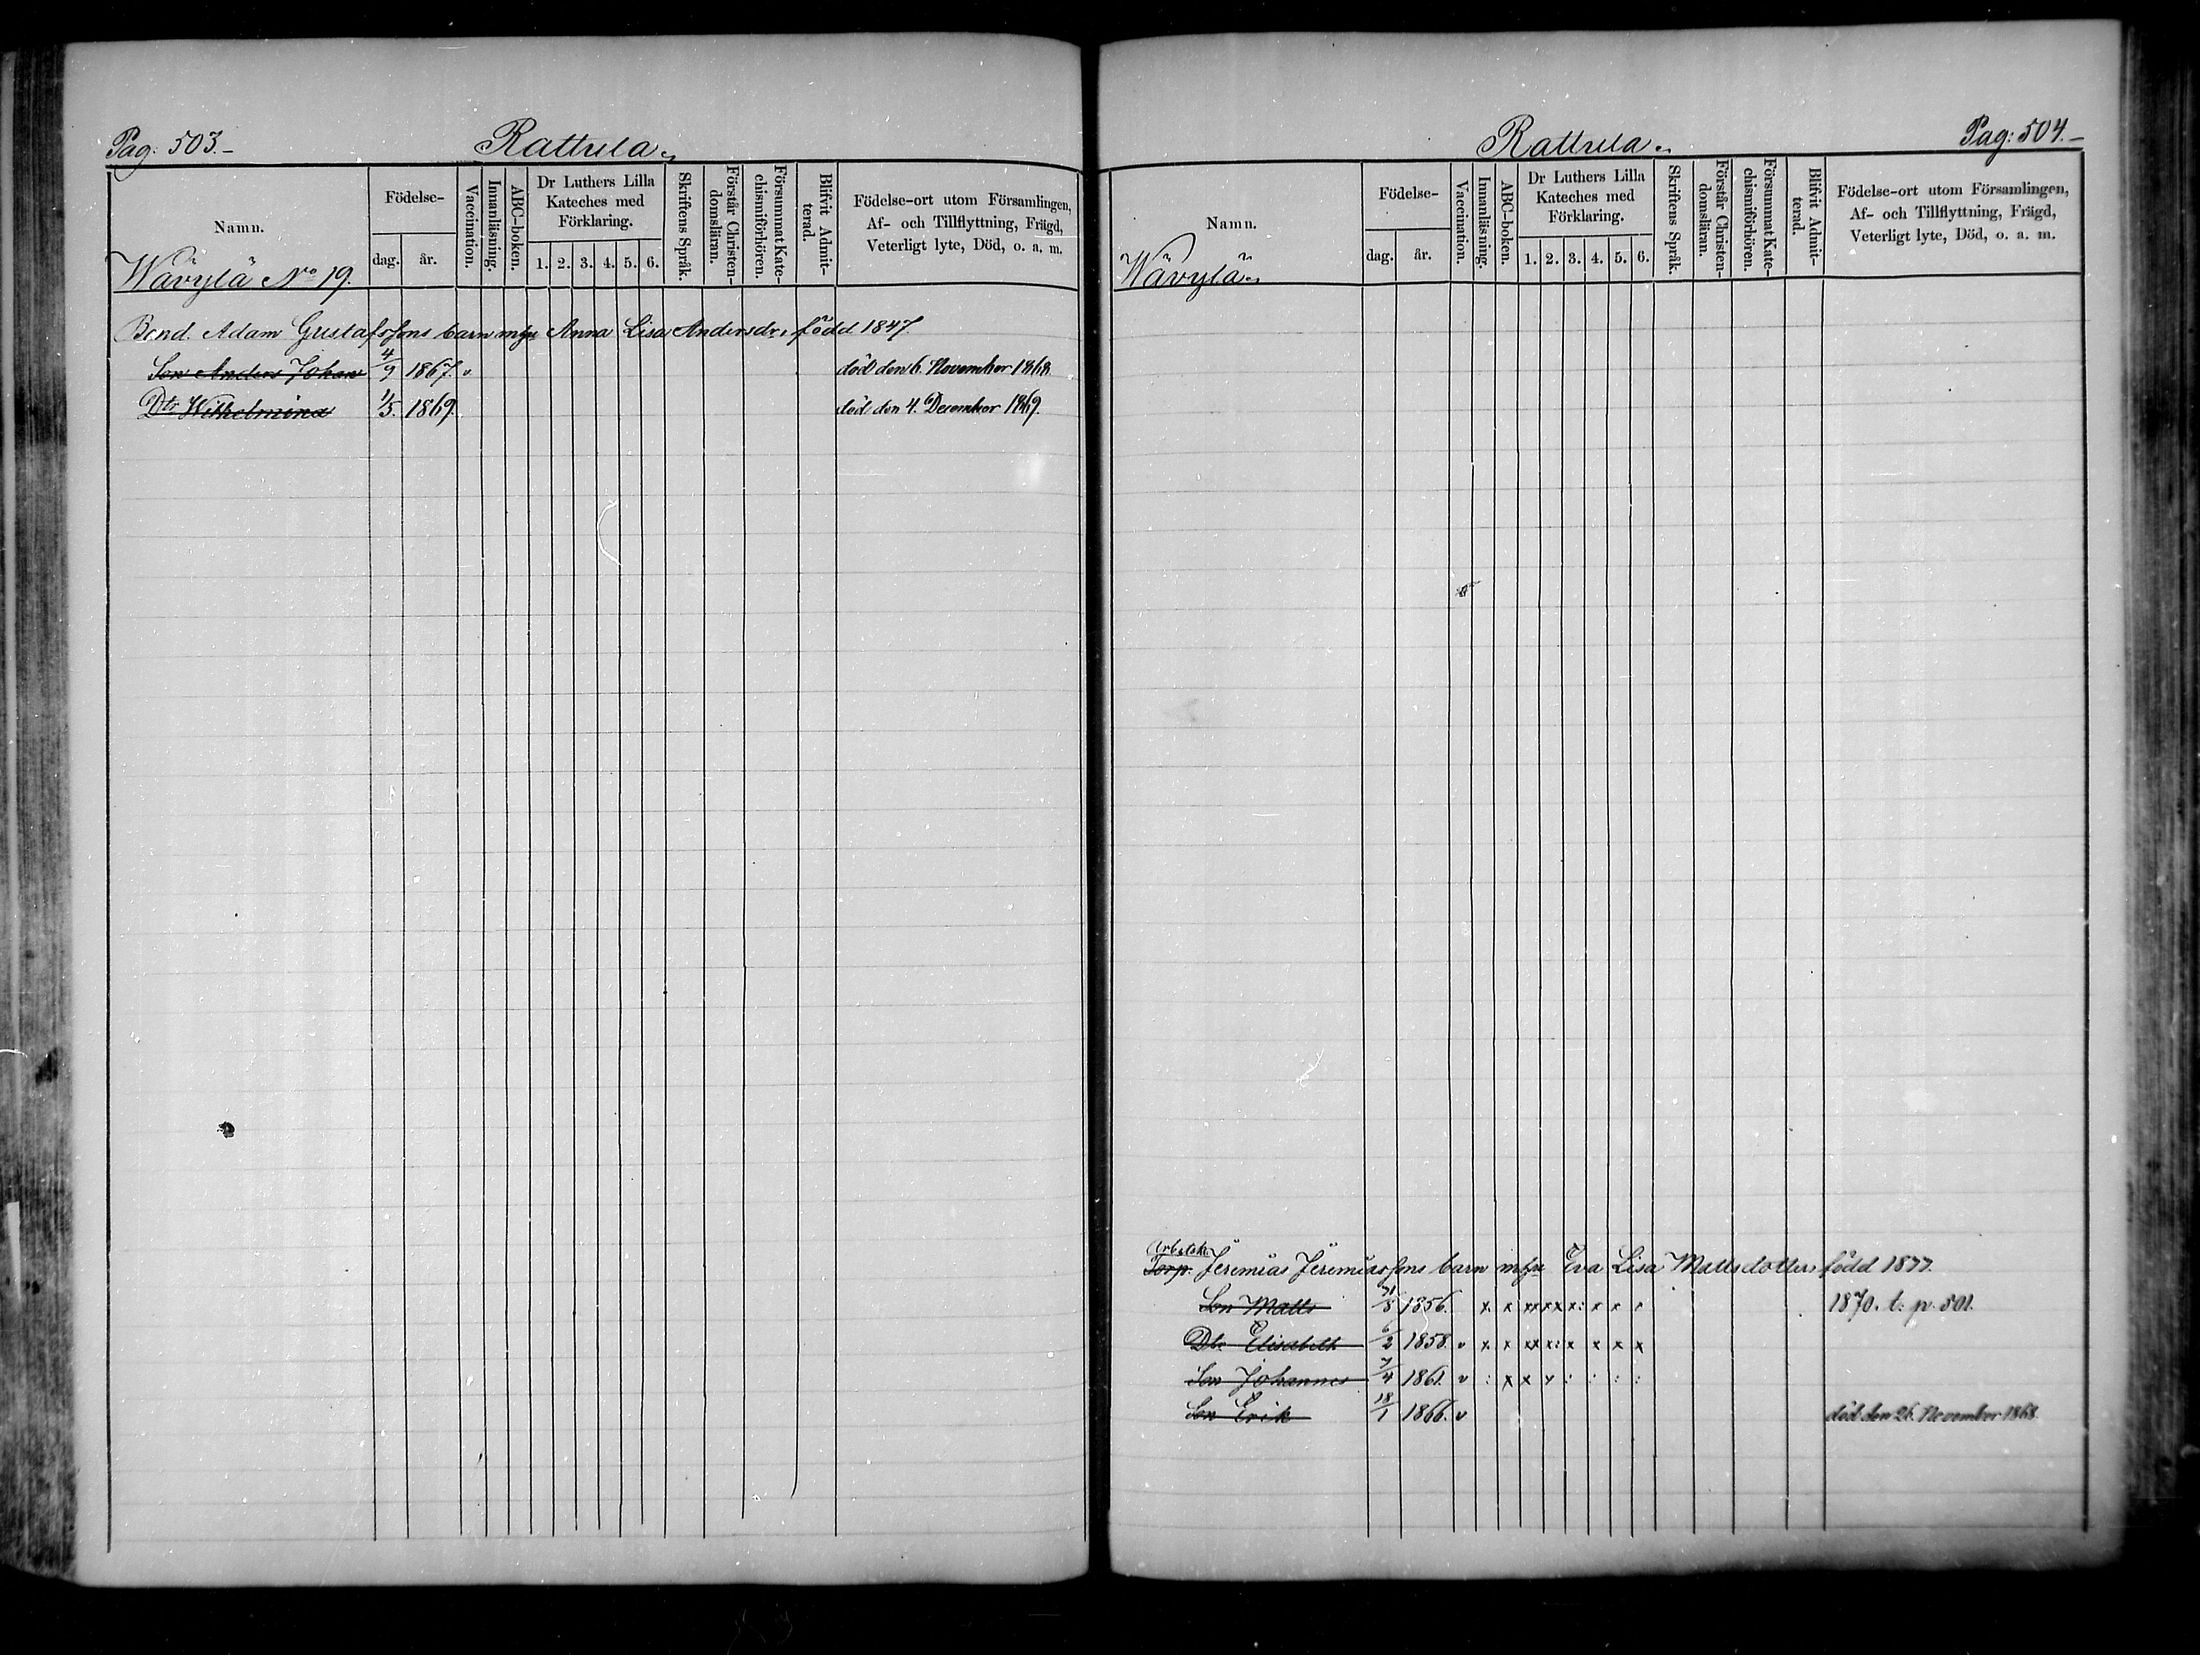 Pag: 503.-
Rattula.
Namn.
Födelse-
dag. år.
Vaccination.
Innanläsning.
ABC-boken.
Dr Luthers Lilla
Kateches med
Förklaring.
1. 2. 3. 4. 5. 6.
Skriftens Språk.
Förstår Christen-
domsläran.
Försummat Kate-
chismiförhören.
Blifvit Admit-
terad.
Födelse-ort utom Församlingen,
Af- och Tillflyttning, Frägd,
Veterligt lyte, Död, o. a. m.
Wävylä No 19.
Bond. Adam Gustafssons barn m hu Anna Lisa Andersdr, född 1847
Son Anders Johan 4/9 1867. v död den 6. November 1868.
Dtr Wilhelmina 1/5. 1869. död den 4. December 1869.
Rattula.
Pag: 504.-
Namn.
Födelse-
dag. år.
Vaccination.
Innanläsning.
ABC-boken.
Dr Luthers Lilla
Kateches med
Förklaring.
1. 2. 3. 4. 5. 6.
Skriftens Språk.
Förstår Christen-
domsläran.
Försummat Kate-
chismiförhören.
Blifvit Admit-
terad.
Födelse-ort utom Församlingen,
Af- och Tillflyttning, Frägd,
Veterligt lyte, Död, o. a. m.
Wävylä.
Arbetsk.
Torp. Jeremias Jeremiassons barn m hu Eva Lisa Mattsdotter, född 18
Son Matts 31/8 1856. x x xx xx x: x x 1870. t. p. 501.
Dtr Elisabeth 6/2 1858. v x x xx x: x x x x
Son Johannes 7/4 1861. v : x x x : : : :
Son Erik 18/1 1866. v död den 26. November 1868.